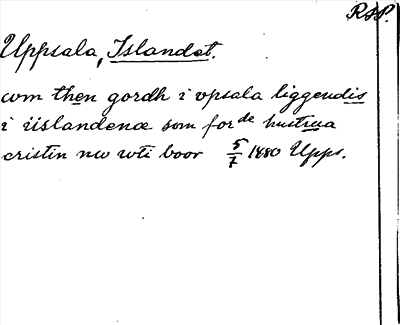 RAP.
Uppsala, Islandet.
wm then gordh i vpsala liggendis
i iislandenæ som forde hustrwa
cristin nw wti boor 5/7 1480 Upps.